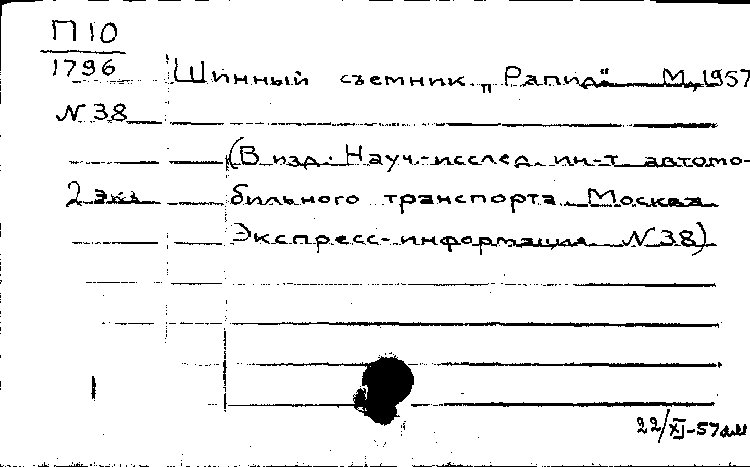 П10
1796
Шинный съемник „Рапид“ М, 1957
N 38
(В изд: Науч.-исслед. ин-т автомо-
2 экз
бильного транспорта. Москва
Экспресс-информация N 38)
22/XI-57